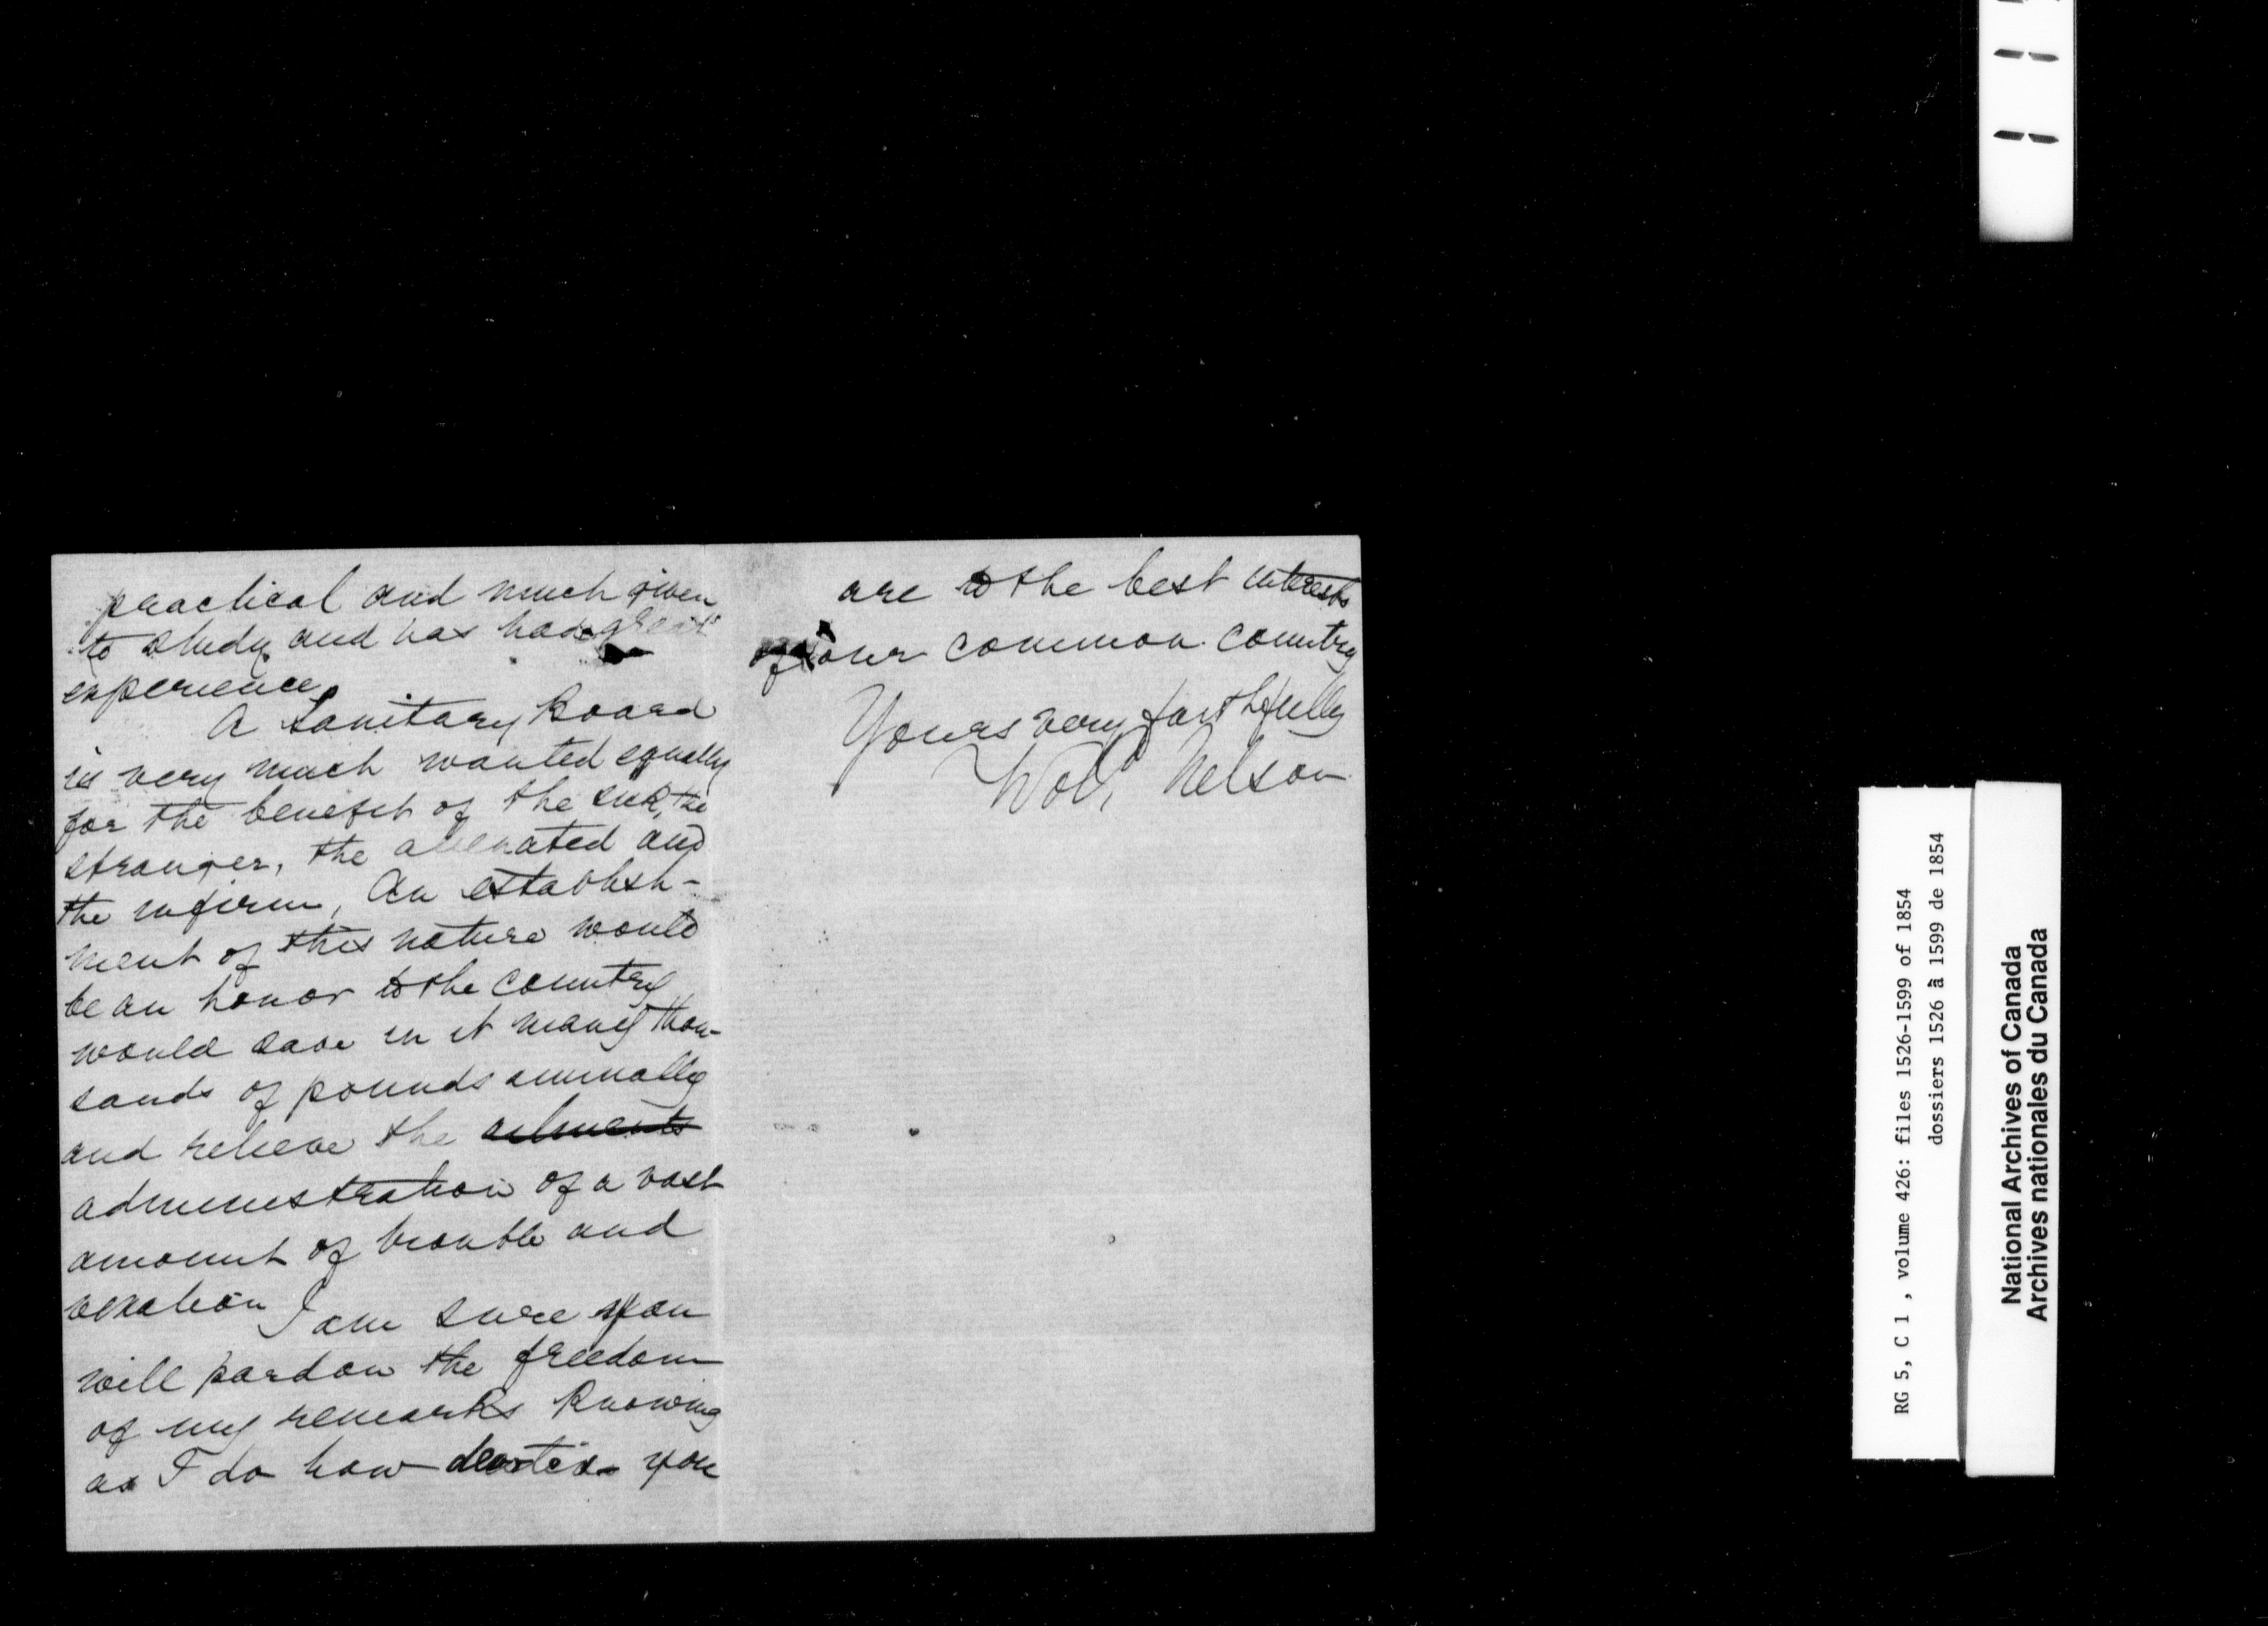 practical and much given
to study and has had great
experience.
A Sanitary Board
is very much wanted equally
for the benefit of the sick, the
stranger, the alienated and
the infirm, An establish-
ment of this nature would
be an honor to the country
would save in it many thou-
sands of pounds annually
and relieve the ailments
administration of a vast
amount of trouble and
vexation I am sure you
will pardon the freedom
of my remarks knowing
as I do how devoted you
are to the best interests
of our common country
Yours very faithfully
Wolf. Nelson
RG 5, C 1 , volume 426: files 1526-1599 of 1854
dossiers 1526 à 1599 de 1854
National Archives of Canada
Archives nationales du Canada